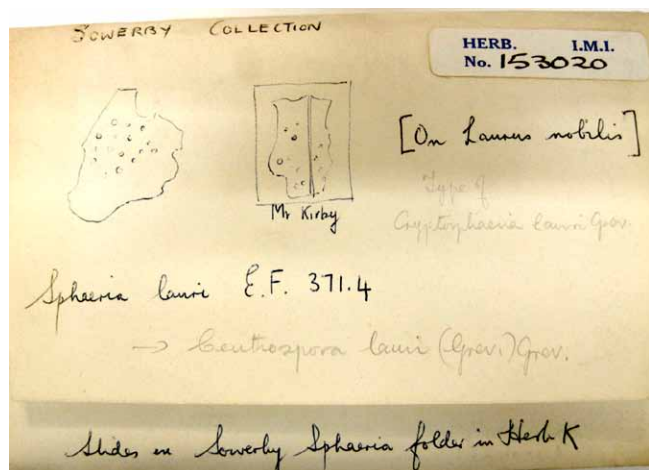 SOWERBY COLLECTION
HERB. I.M.I.
No. 153020
[On Laurus nobilis]
Type of
Cryptosphaeria lauri Grev.
Mr Kirby
Sphaeria lauri E.F. 371.4
→ Ceuthospora lauri (Grev.) Grev.
Slides in Sowerby Sphaeria folder in Herb K